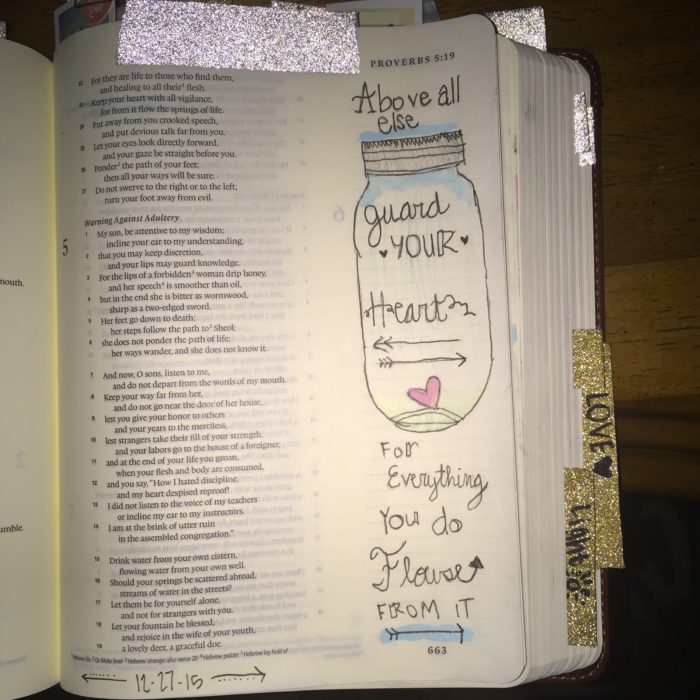 PROVERBS 5:19
22 For they are life to those who find them,
and healing to all their⁴ flesh.
23 Keep your heart with all vigilance,
for from it flow the springs of life.
24 Put away from you crooked speech,
and put devious talk far from you.
25 Let your eyes look directly forward,
and your gaze be straight before you.
26 Ponder⁵ the path of your feet;
then all your ways will be sure.
27 Do not swerve to the right or to the left;
turn your foot away from evil.
Warning Against Adultery
5
1 My son, be attentive to my wisdom;
incline your ear to my understanding,
2 that you may keep discretion,
and your lips may guard knowledge.
3 For the lips of a forbidden² woman drip honey,
and her speech⁴ is smoother than oil,
4 but in the end she is bitter as wormwood,
sharp as a two-edged sword.
5 Her feet go down to death;
her steps follow the path to⁵ Sheol;
6 she does not ponder the path of life;
her ways wander, and she does not know it.
7 And now, O sons, listen to me,
and do not depart from the words of my mouth.
8 Keep your way far from her,
and do not go near the door of her house,
9 lest you give your honor to others
and your years to the merciless,
10 lest strangers take their fill of your strength,
and your labors go to the house of a foreigner,
11 and at the end of your life you groan,
when your flesh and body are consumed,
12 and you say, "How I hated discipline,
and my heart despised reproof!
13 I did not listen to the voice of my teachers
or incline my ear to my instructors.
14 I am at the brink of utter ruin
in the assembled congregation."
15 Drink water from your own cistern,
flowing water from your own well.
16 Should your springs be scattered abroad,
streams of water in the streets?
17 Let them be for yourself alone,
and not for strangers with you.
18 Let your fountain be blessed,
and rejoice in the wife of your youth,
19 a lovely deer, a graceful doe.
12-27-15
Above all
else
guard
YOUR
Heart
For
Everything
You do
Flowse
FROM IT
663
LOVE
mouth.
umble.